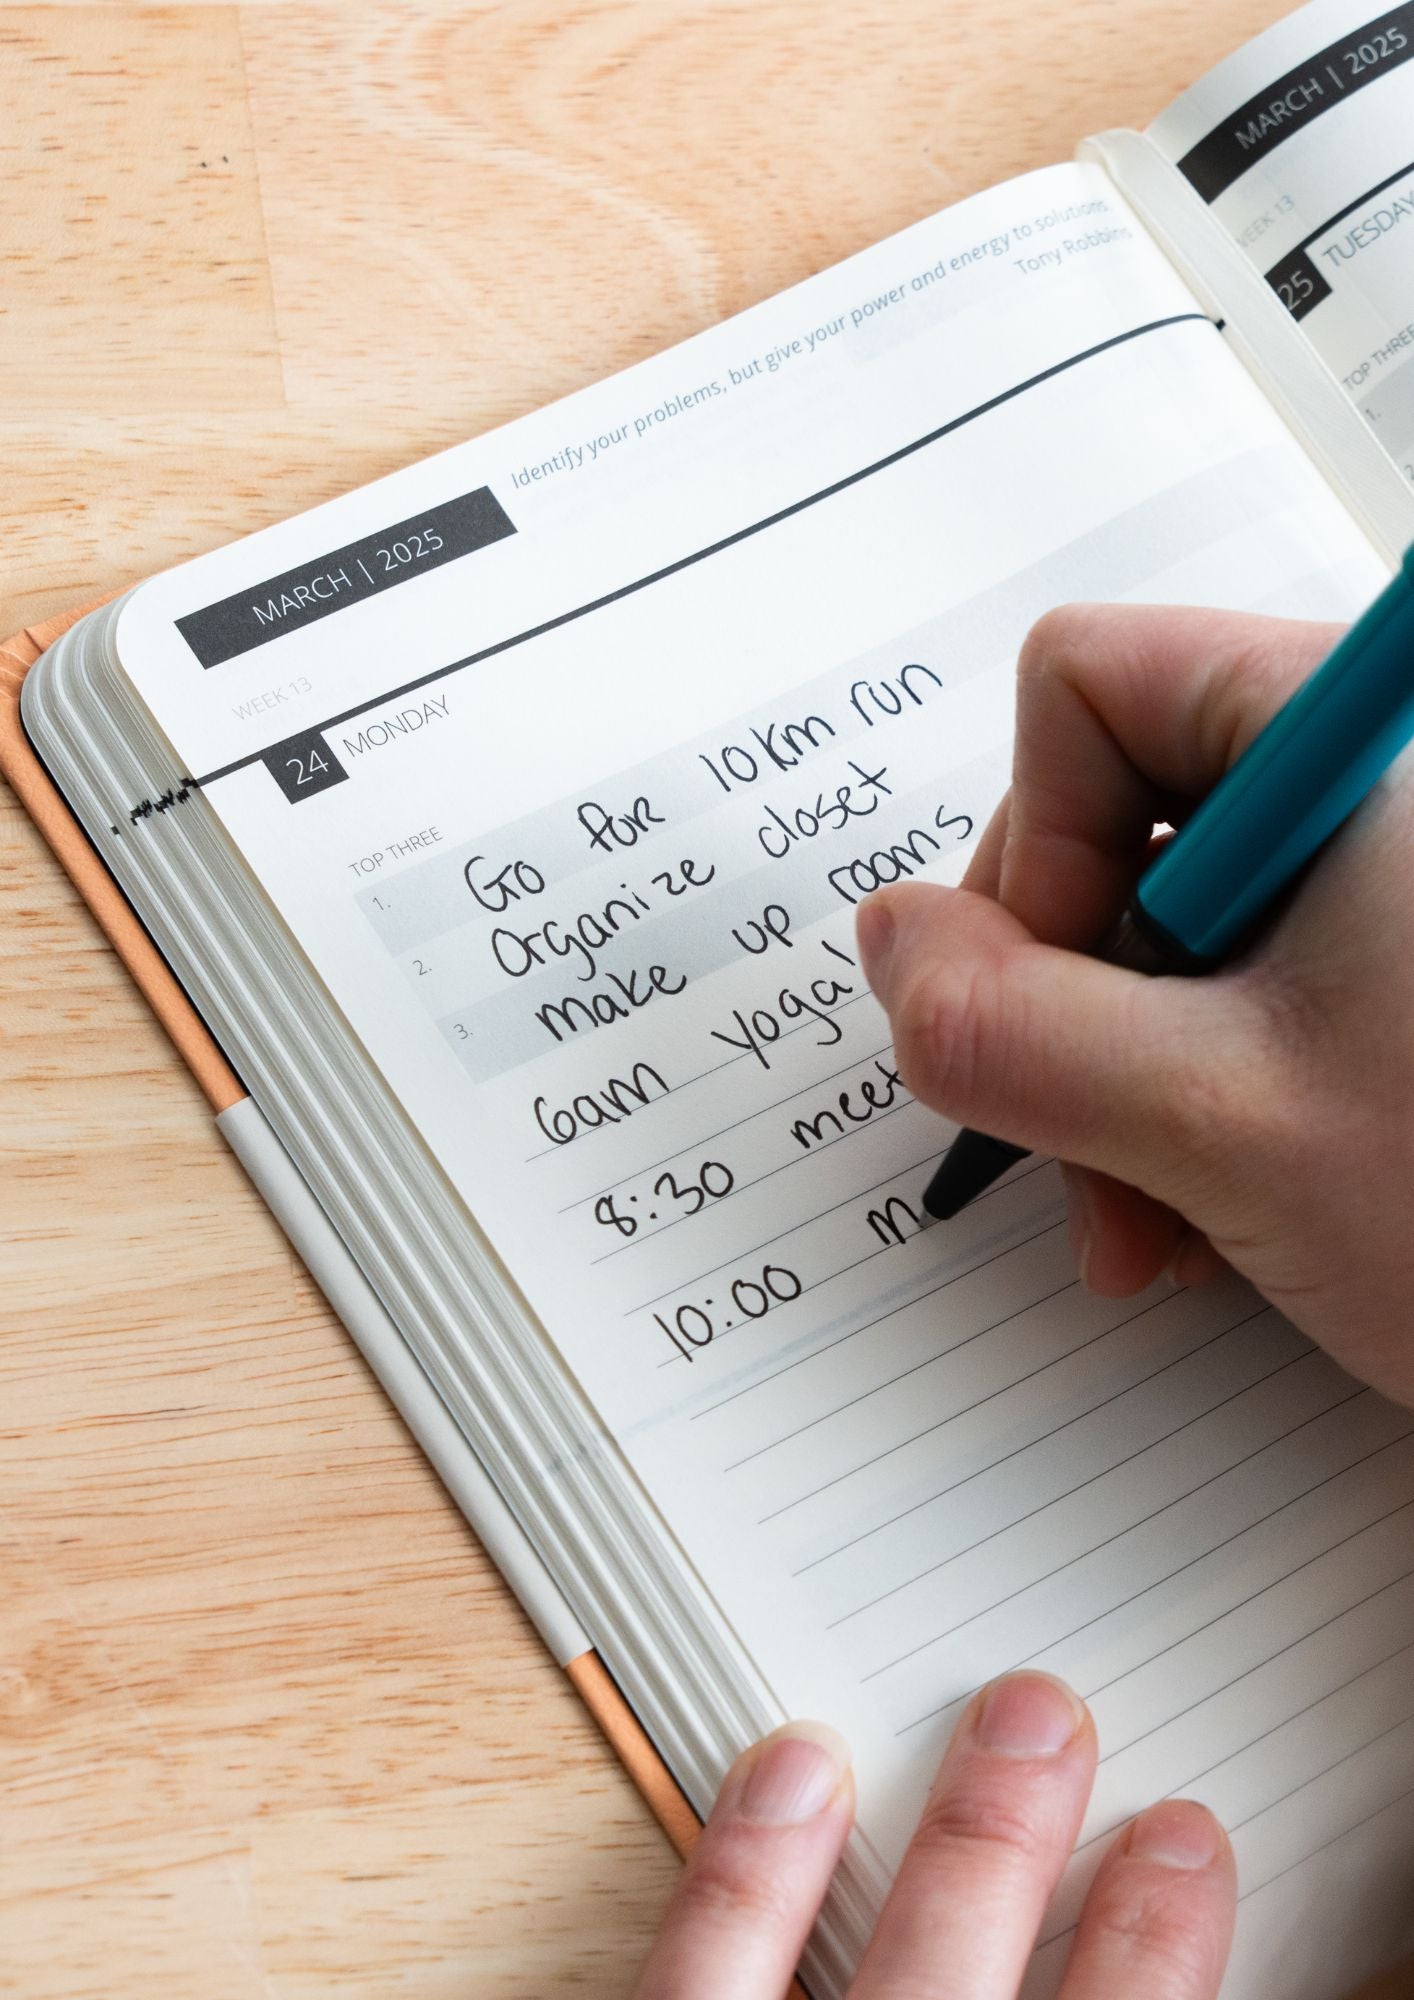 Identify your problems, but give your power and energy to solutions.
Tony Robbins
MARCH | 2025
WEEK 13
24 MONDAY
TOP THREE
1. Go for 10km run
2. Organize closet
3. make up rooms
6am yoga
8:30 meet
10:00 m
MARCH | 2025
WEEK 13
25 TUESDAY
TOP THREE
1.
2.